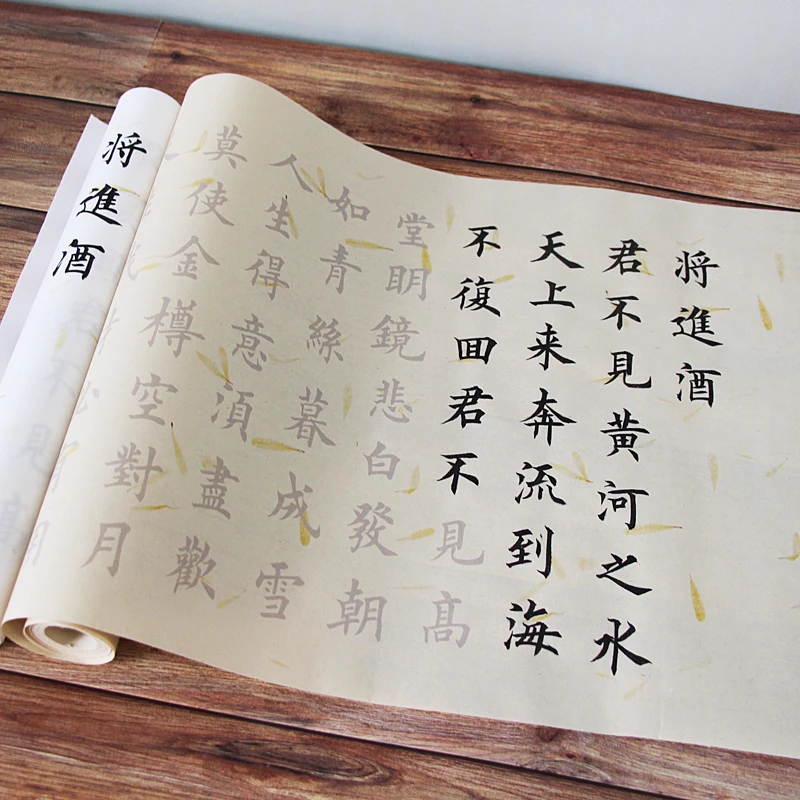 将進酒
君不見黄河之水
天上来奔流到海
不復囬君不見髙
堂明鏡悲白發朝
如青絲暮成雪
人生得意湏盡歡
莫使金樽空對月
将進酒